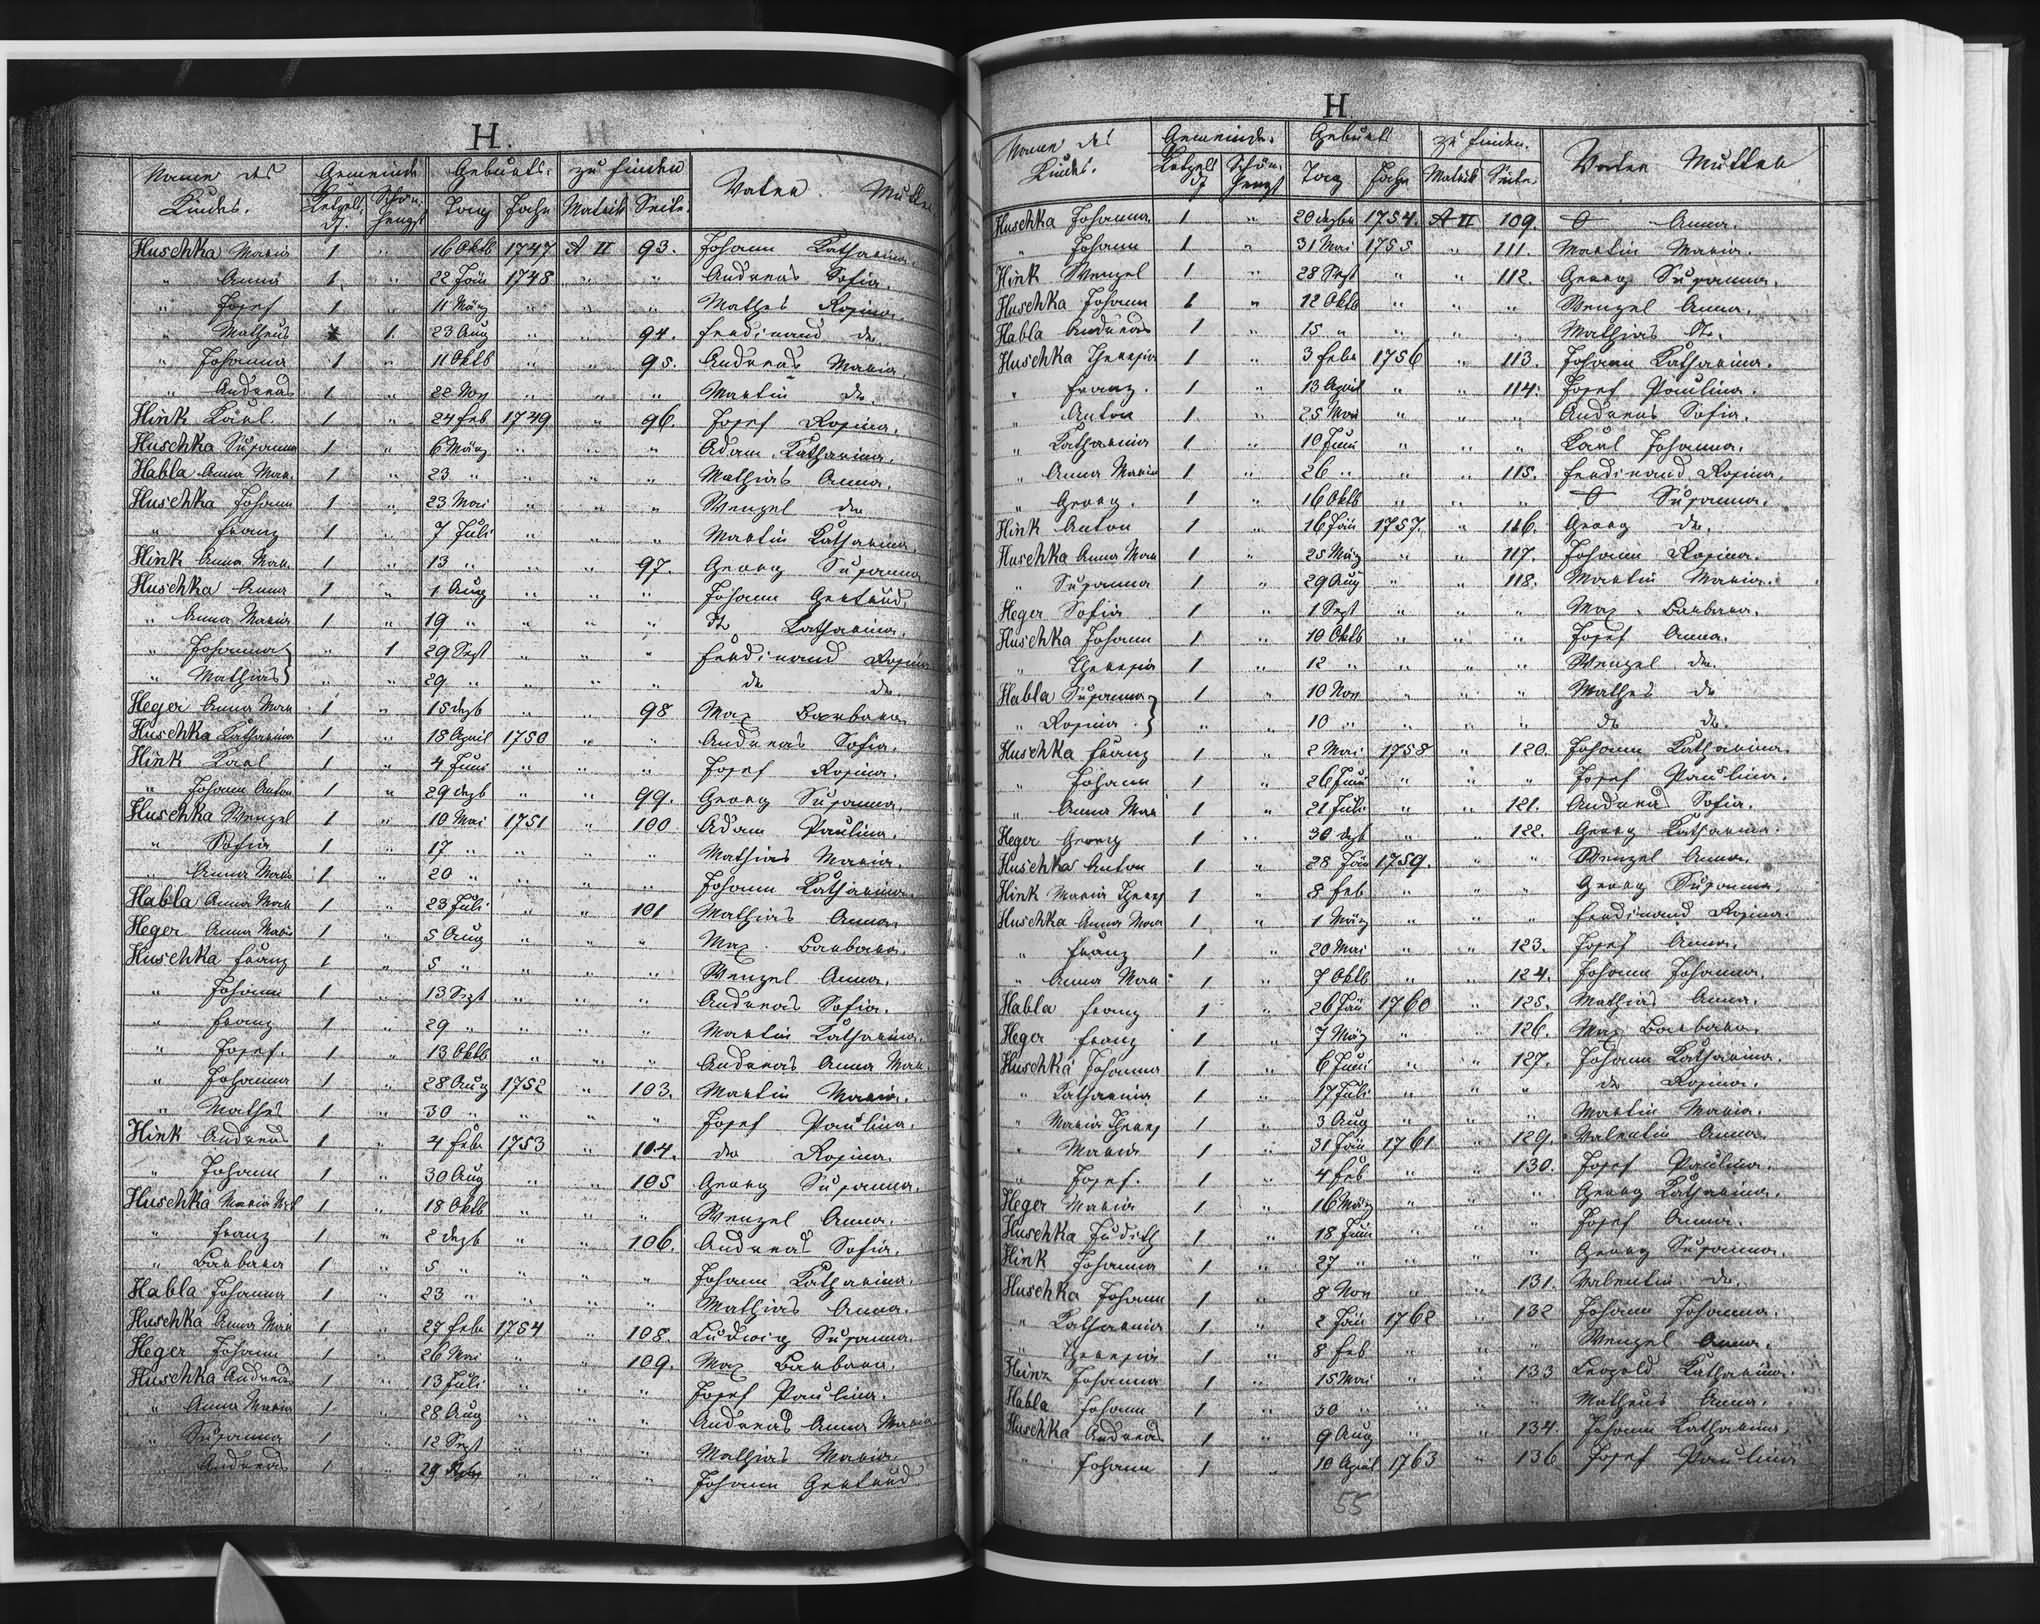 H.
Name des Kindes. Gemeinde Geburts: zu finden Vater. Mutter
Ketzelsdf. Schönhengst Tag Jahr Matrik Seite.
Huschka Maria 1 " 16 Oktb 1747 A II 93. Johann Katharina.
" Anna 1 " 22 Jän 1748 " " Andreas Sofia.
" Josef 1 " 11 März " " " Mathes Rosina.
" Matheus 1. 23 Aug " " 94. Ferdinand do.
" Johanna 1 " 11 Oktb " " 95. Andreas Maria.
" Andreas 1 " 22 Nov " " " Martin do.
Hink Karl. 1 " 24 Feb 1749 " 96. Josef Rosina.
Huschka Susanna 1 " 6 März " " " Adam Katharina.
Habla Anna Mar. 1 " 23 " " " " Mathias Anna.
Huschka Johann 1 " 23 Mai " " " Wenzel do
" Franz 1 " 7 Juli " " " Martin Katharina.
Hink Anna Mar. 1 " 13 " " " 97. Georg Susanna
Huschka Anna 1 " 1 Aug " " " Johann Gertrud.
" Anna Maria 1 " 19 " " " " do Katharina.
" Johanna } " 1 29 Sept " " " Ferdinand Rosina
" Mathias } " " 29 " " " " do do.
Heger Anna Mar 1 " 15 dezb " " 98 Max Barbara
Huschka Katharina 1 " 18 April 1750 " " Andreas Sofia.
Hink Karl 1 " 4 Juni " " " Josef Rosina.
" Johann Anton 1 " 29 dezb " " 99. Georg Susanna.
Huschka Wenzel 1 " 10 Mai 1751 " 100 Adam Paulina.
" Sofia 1 " 17 " " " " Mathias Maria.
" Anna Maria 1 " 20 " " " " Johann Katharina.
Habla Anna Mar 1 " 23 Juli " " 101 Mathias Anna.
Heger Anna Maria 1 " 5 Aug " " " Max. Barbara.
Huschka Franz 1 " 5 " " " " Wenzel Anna.
" Johann 1 " 13 Sept " " " Andreas Sofia.
" Franz 1 " 29 " " " " Martin Katharina.
" Josef. 1 " 13 Oktb " " " Andreas Anna Mar.
" Johanna 1 " 28 Aug 1752 " 103. Martin Maria.
" Mathes 1 " 30 " " " " Josef Paulina.
Hink Andreas 1 " 4 Febr 1753 " 104. do Rosina.
" Johann 1 " 30 Aug " " 105 Georg Susanna.
Huschka Maria 1 " 18 Oktb " " " Wenzel Anna.
" Franz 1 " 2 dezb " " 106. Andreas Sofia.
" Barbara 1 " 5 " " " " Johann Katharina.
Habla Johanna 1 " 23 " " " " Mathias Anna.
Huschka Anna Mar 1 " 27 Febr 1754 " 108. Ludwig Susanna.
Heger Johann 1 " 26 Mai " " 109. Max Barbara.
Huschka Andreas 1 " 13 Juli " " " Josef Paulina.
" Anna Maria 1 " 28 Aug " " " Andreas Anna Maria
" Susanna 1 " 12 Sept " " " Mathias Maria
" Andreas 1 " 29 " " " Johann Gertrud
H
Name des Kindes. Gemeinde. Geburt zu finden. Vater Mutter
Ketzelsdf Schönhengst Tag Jahr Matrik Seite.
Huschka Johanna. 1 " 20 dezbr 1754. A II 109. O Anna.
" Johann 1 " 31 Mai 1755 " 111. Martin Maria.
Hink Wenzel 1 " 28 Sept " " 112. Georg Susanna.
Huschka Johann 1 " 12 Oktb " " " Wenzel Anna.
Habla Andreas 1 " 15 " " " " Mathias do.
Huschka Theresia 1 " 3 Febr 1756 " 113. Johann Katharina.
" Franz. 1 " 13 April " " 114. Josef Paulina.
" Anton 1 " 25 Mai " " " Andreas Sofia.
" Katharina 1 " 10 Juni " " " Karl Johanna.
" Anna Maria 1 " 26 " " " 115. Ferdinand Rosina.
" Georg. 1 " 16 Oktb " " " O Susanna.
Hink Anton 1 " 16 Jän 1757. " 116. Georg do.
Huschka Anna Mar 1 " 25 März " " 117. Johann Rosina.
" Susanna 1 " 29 Aug " " 118. Martin Maria.
Heger Sofia 1 " 1 Sept " " " Max. Barbara.
Huschka Johann 1 " 10 Oktb " " " Josef Anna.
" Theresia 1 " 12 " " " " Wenzel do.
Habla Susanna } 1 " 10 Nov " " " Mathes do
" Rosina } " " 10 " " " " do do.
Huschka Franz 1 " 2 Mai 1758 " 120. Johann Katharina.
" Johann 1 " 26 Juni " " " Josef Paulina.
" Anna Mar 1 " 21 Juli " " 121. Andreas Sofia.
Heger Georg 1 " 30 dezb " " 122. Georg Katharina.
Huschka Anton 1 " 28 Jän 1759. " " Wenzel Anna.
Hink Maria Theres 1 " 8 Feb " " " Georg Susanna.
Huschka Anna Mar 1 " 1 März " " " Ferdinand Rosina.
" Franz 1 " 20 Mai " " 123. Josef Anna.
" Anna Mar 1 " 7 Oktb " " 124. Johann Johanna.
Habla Franz 1 " 26 Jän 1760 " 125. Mathias Anna.
Heger Franz 1 " 7 März " " 126. Max Barbara.
Huschka Johanna 1 " 6 Juni " " 127. Johann Katharina.
" Katharina 1 " 17 Juli " " " do Rosina.
" Maria Theres 1 " 3 Aug " " " Martin Maria.
" Maria 1 " 31 Jän 1761 " 129. Valentin Anna.
" Josef. 1 " 4 Feb " " 130. Josef Paulina.
Heger Maria 1 " 16 März " " " Georg Katharina.
Huschka Judith 1 " 18 Juni " " " Josef Anna.
Hink Johanna 1 " 27 " " " " Georg Susanna.
Huschka Johann 1 " 8 Nov " " 131. Valentin do.
" Katharina 1 " 2 Jän 1762 " 132 Johann Johanna.
" Theresia 1 " 8 Feb " " " Wenzel Anna.
Heinz Johanna 1 " 15 Mai " " 133 Leopold Katharina.
Habla Johann 1 " 30 " " " " Matheus Anna.
Huschka Andreas 1 " 9 Aug " " 134. Johann Katharina
" Johann 1 " 10 April 1763 " 136 Josef Paulina
55